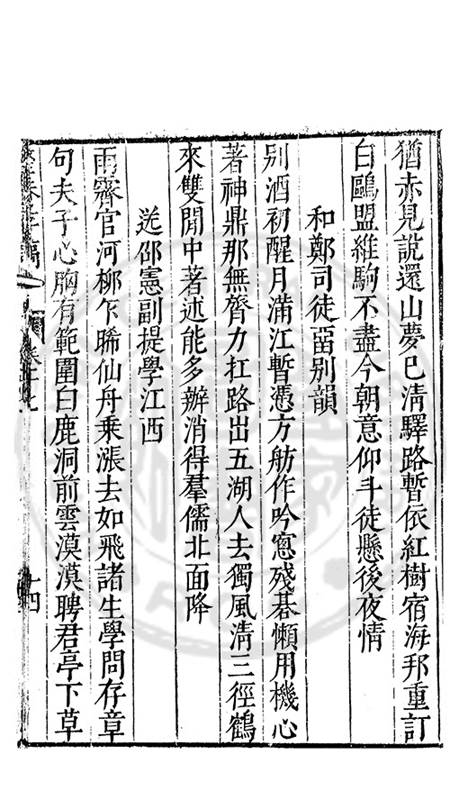 猶赤見說還山夢已清驛路暫依紅樹宿海邦重訂
白鷗盟維駒不盡今朝意仰斗徒懸後夜情
和鄭司徒畱別韻
別酒初醒月滿江暫憑方舫作吟窓殘碁懶用機心
著神鼎那無膂力扛路出五湖人去獨風清三徑鶴
來雙閒中著述能多辦消得羣儒北面降
送邵憲副提學江西
雨霽官河柳乍晞仙舟乘漲去如飛諸生學問存章
句夫子心胸有範圍白鹿洞前雲漠漠聘君亭下草
卷十七
十四